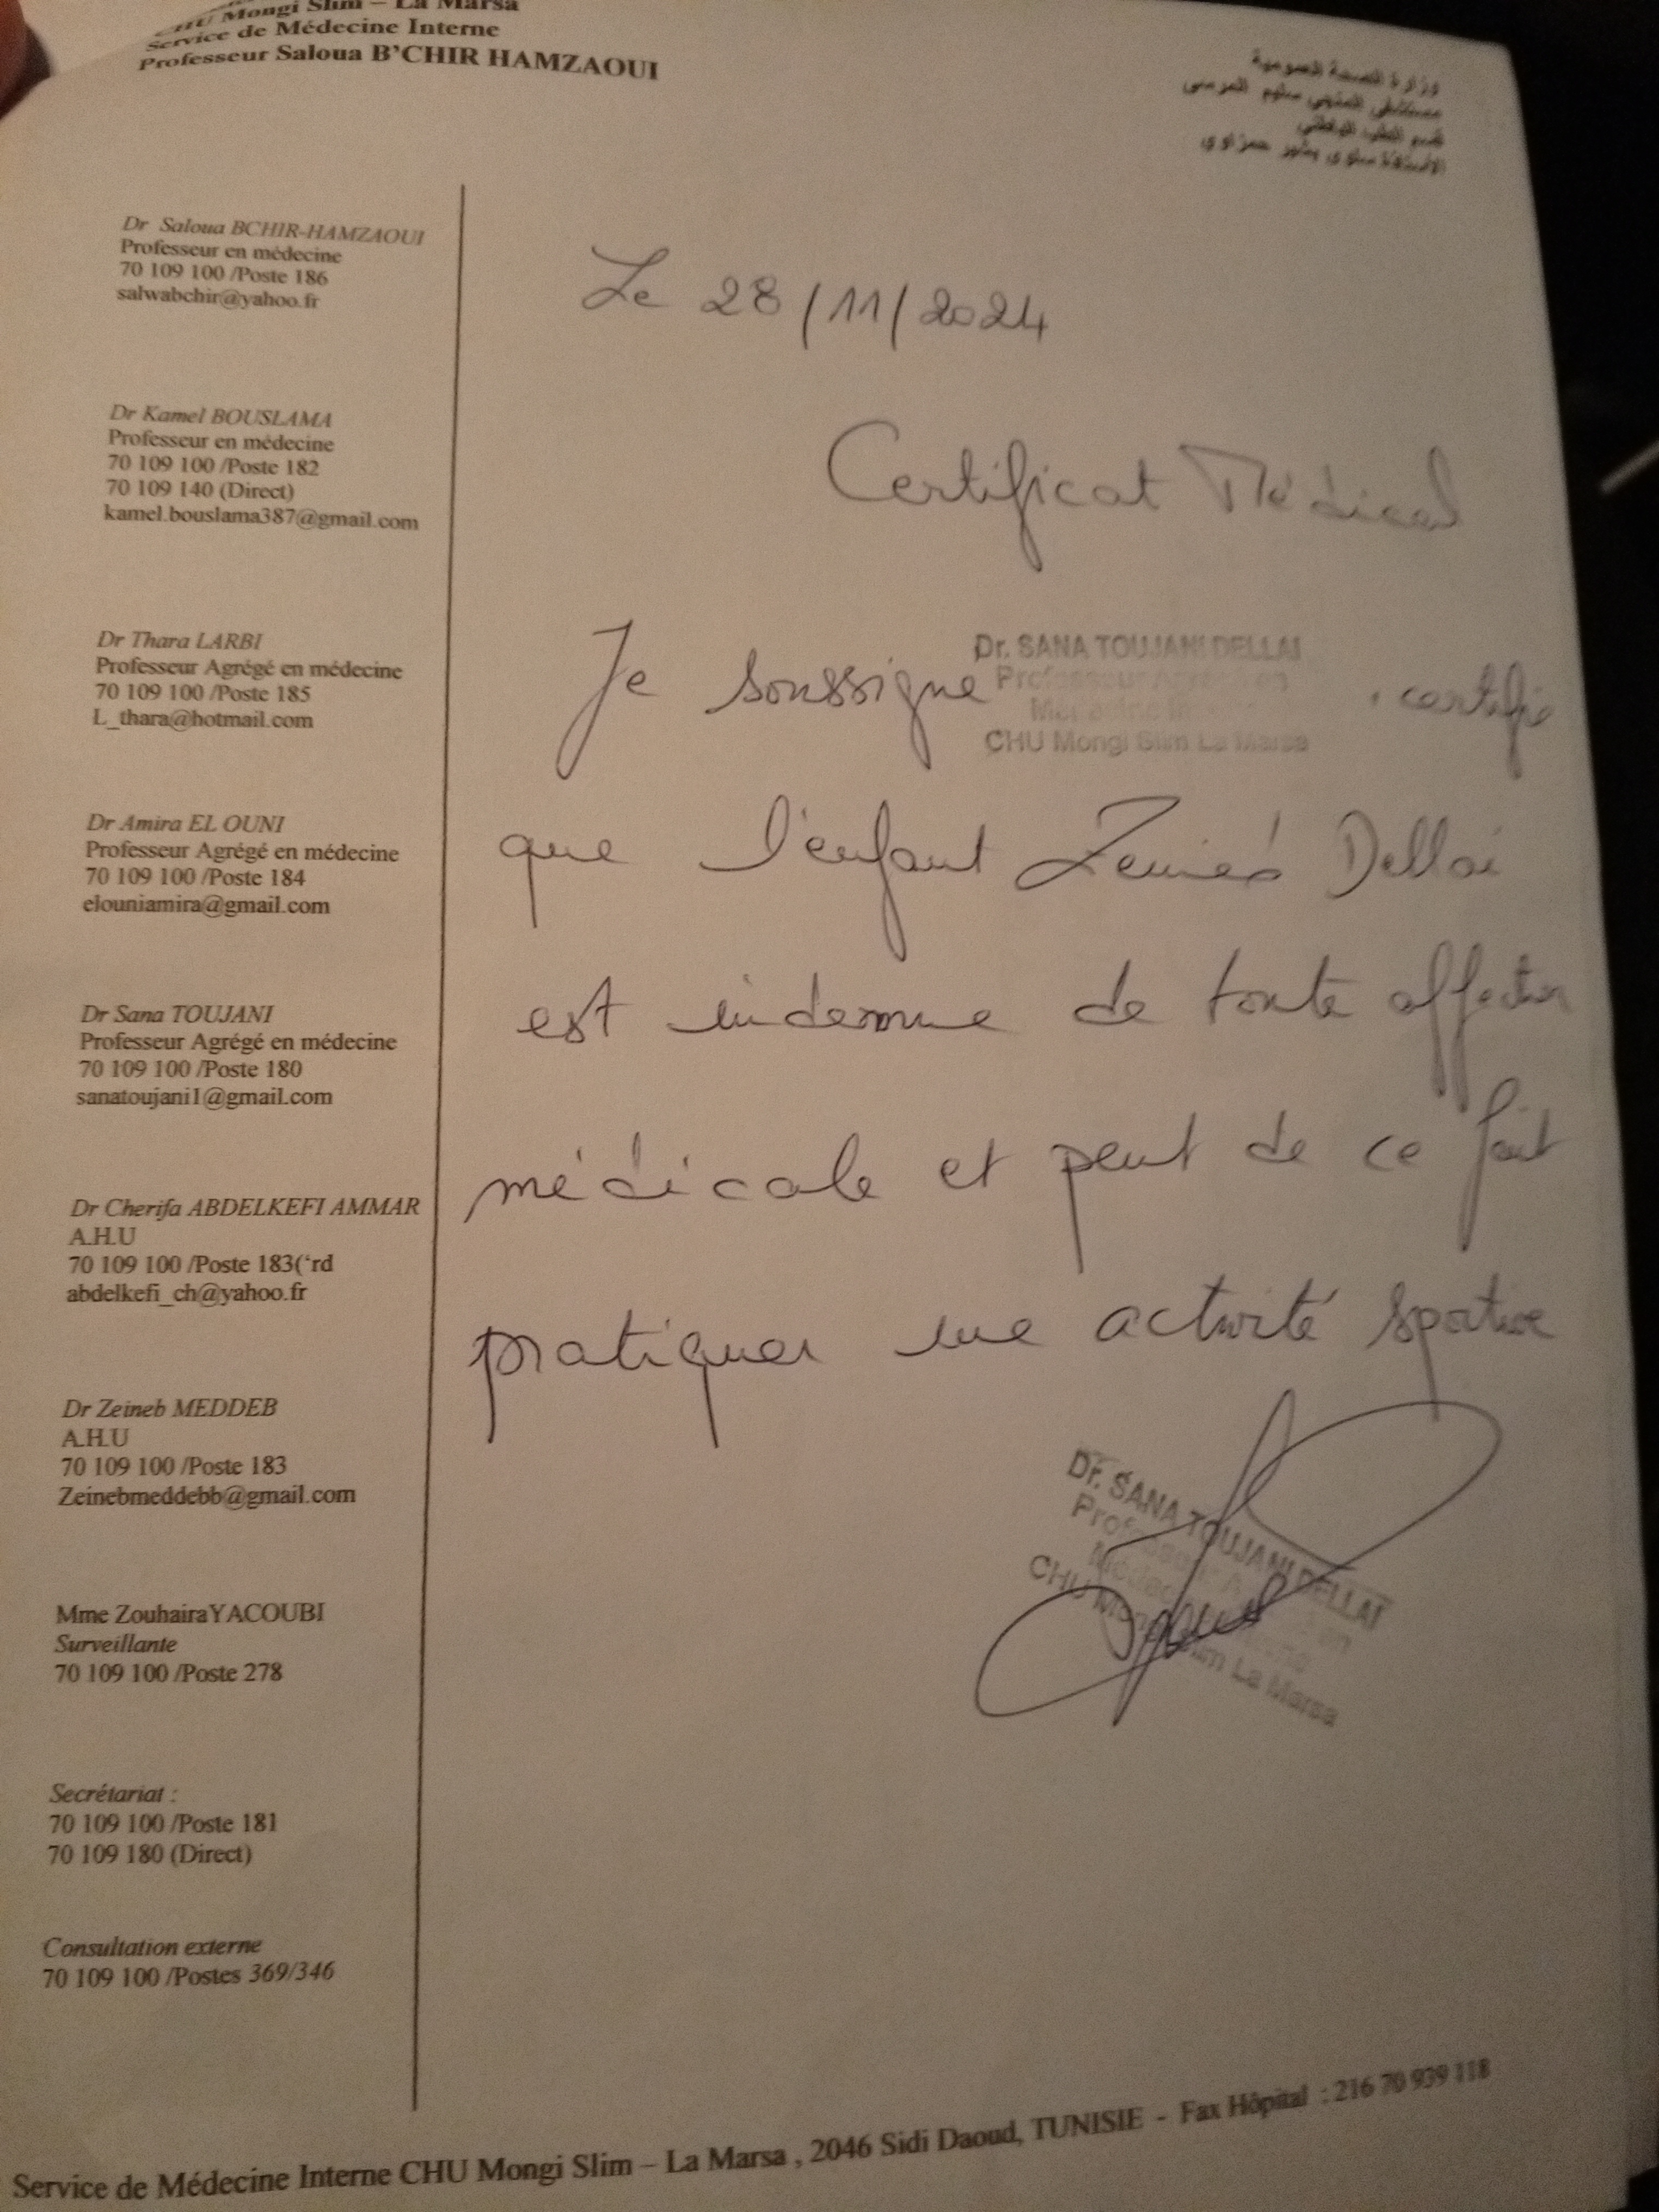 CHU Mongi Slim – La Marsa
Service de Médecine Interne
Professeur Saloua B'CHIR HAMZAOUI
وزارة الصحة العمومية
مستشفى المنجي سليم المرسى
قسم الطب الباطني
الأستاذة سلوى بشير حمزاوي
Dr Saloua BCHIR-HAMZAOUI
Professeur en médecine
70 109 100 /Poste 186
salwabchir@yahoo.fr
Dr Kamel BOUSLAMA
Professeur en médecine
70 109 100 /Poste 182
70 109 140 (Direct)
kamel.bouslama387@gmail.com
Dr Thara LARBI
Professeur Agrégé en médecine
70 109 100 /Poste 185
L_thara@hotmail.com
Dr Amira EL OUNI
Professeur Agrégé en médecine
70 109 100 /Poste 184
elouniamira@gmail.com
Dr Sana TOUJANI
Professeur Agrégé en médecine
70 109 100 /Poste 180
sanatoujani1@gmail.com
Dr Cherifa ABDELKEFI AMMAR
A.H.U
70 109 100 /Poste 183(‘rd
abdelkefi_ch@yahoo.fr
Dr Zeineb MEDDEB
A.H.U
70 109 100 /Poste 183
Zeinebmeddebb@gmail.com
Mme ZouhairaYACOUBI
Surveillante
70 109 100 /Poste 278
Secrétariat :
70 109 100 /Poste 181
70 109 180 (Direct)
Consultation externe
70 109 100 /Postes 369/346
Le 28/11/2024
Certificat Médical
Je soussigne
Dr. SANA TOUJANI DELLAI
Professeur
CHU Mongi Slim La Marsa
certifie
que l'enfant Dellai
est indemne de toute affection
médicale et peut de ce fait
pratiquer une activité sportive
Dr. SANA TOUJANI DELLAI
Professeur
CHU Mongi Slim La Marsa
Service de Médecine Interne CHU Mongi Slim – La Marsa , 2046 Sidi Daoud, TUNISIE - Fax Hôpital : 216 70 939 118